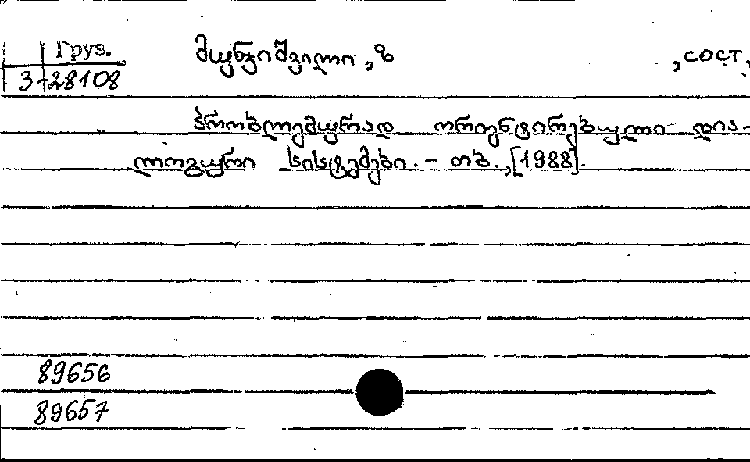 Груз.
მუნჯიშვილი, ზ , сост.,
3-28108
პრობლემურად ორიენტირებული დია-
ლოგური სისტემები. – თბ., [1988].
89656
89657